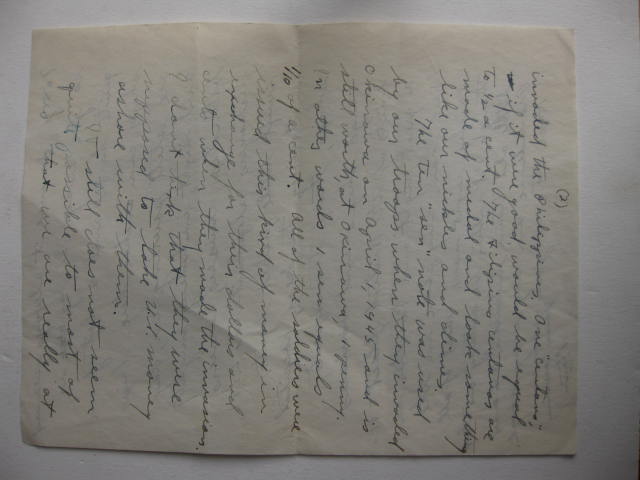 (2)
invaded the Philippines, One "centavo"
if it were good would be equal
to ½ a cent. The Filipino centavos are
made of medal and look something
like our nickles and dimes.
The ten "sen" note was used
by our troops when they invaded
Okinawa on April 1, 1945 and is
still worth, at Okinawa, 1 penny.
In other words 1 sen equals
1/10 of a cent. All of the soldiers were
issued this kind of money in
exchange for their dollars and
cents when they made the invasion.
I don't think that they were
supposed to take U.S. money
ashore with them.
It still does not seem
quite possible to most of
us that we are really at